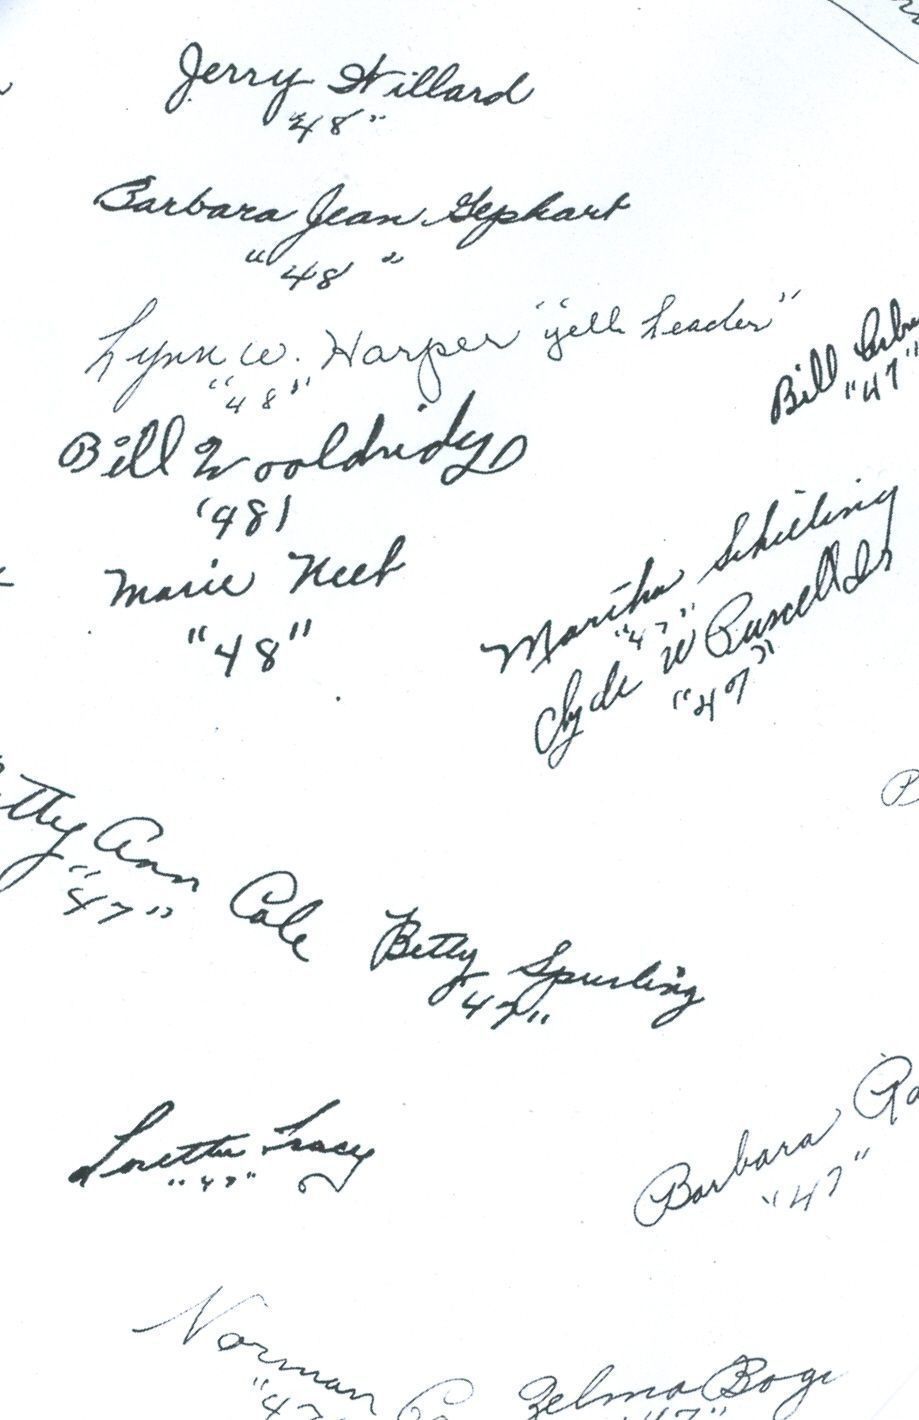 Jerry Willard
"48"
Barbara Jean Gephart
"48"
Lynn W. Harper "yell Leader"
"48"
Bill
"47"
Bill Wooldridge
'48'
Marie Neet
"48"
Martha Schilling
"47"
Clyde W Russell Jr
"47"
Ann Cole
"47"
Betty Spurling
"47"
Loretta Tracy
"47"
Barbara
"47"
Norman
"47
Zelma
"47"